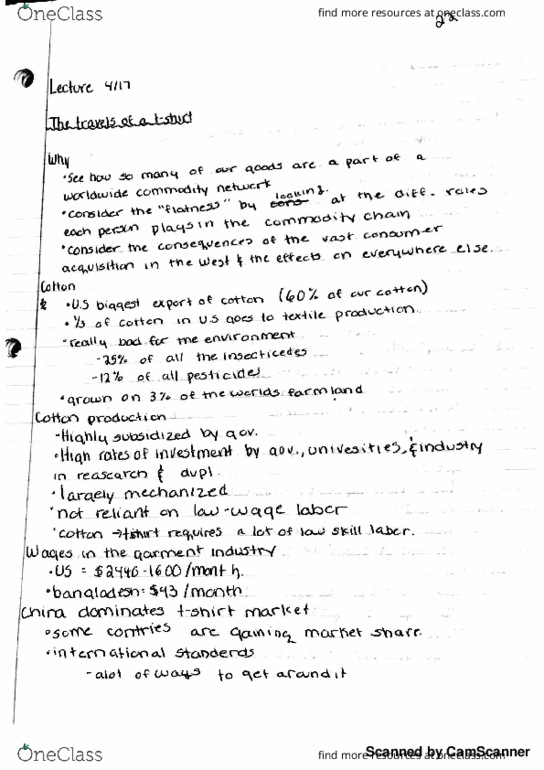 OneClass
find more resources at oneclass.com
22
Lecture 4/17
The travels of a t-shirt
Why
•See how so many of our goods are a part of a
worldwide commodity netwerk
•consider the "flatness" by looking at the diff. roles
each person plays in the commodity chain
•consider the consequences of the vast consumer
acquisition in the West & the effects on everywhere else.
Cotton
•US biggest export of cotton (60% of our cotton)
•⅓ of cotton in U.S goes to textile production.
-really bad for the environment
-25% of all the insectecedes
-12% of all pesticides
•grown on 3% of the worlds farmland
Cotton production
-Highly subsidized by gov.
•High rates of investment by gov., univesities, & industry
in reasearch & dvpl.
•largely mechanized
•not reliant on low-wage laber
•cotton → tshirt requires a lot of low skill laber.
Wages in the garment industry
•US = $2440-1600/month.
•bangladesh: $43/month
China dominates t-shirt market
•some contries are gaining market share.
•international standerds
-alot of ways to get around it
OneClass
find more resources at oneclass.com
Scanned by CamScanner